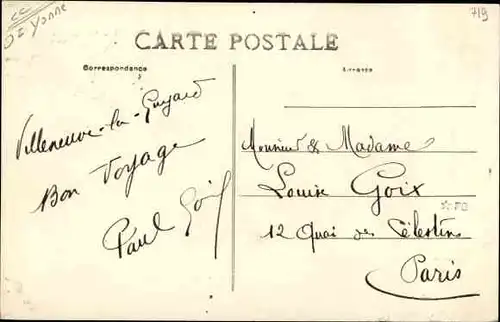 Yonne
719
CARTE POSTALE
Correspondance
Villeneuve-la-Guyard
Bon Voyage
Paul Goix
Monsieur & Madame
Louis Goix
12 Quai des Célestins
Paris